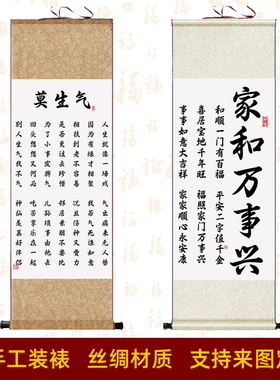 莫生气
人生就像一场戏 气出病来无人替
因为有缘才相聚 我若气死谁如意
相扶到老不容易 况且伤神又费力
是否更该去珍惜 邻居亲朋不要比
为了小事发脾气 儿孙琐事由他去
回头想想又何必 吃苦享乐在一起
别人生气我不气 神仙羡慕好伴侣
家和万事兴
和顺一门有百福 平安二字值千金
喜居宝地千年旺 福照家门万事兴
事事如意大吉祥 家家顺心永安康
手工装裱 丝绸材质 支持来图